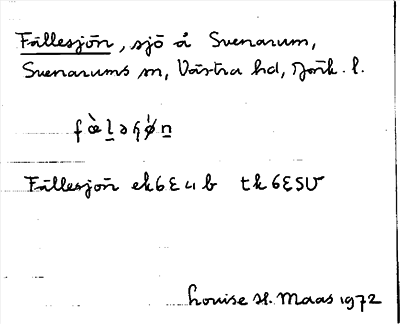 Fällesjön, sjö å Svenarum,
Svenarums sn, Västra hd, Jönk. l.
Fällesjön ek6E4b tk6E5U
Louise H. Maas 1972